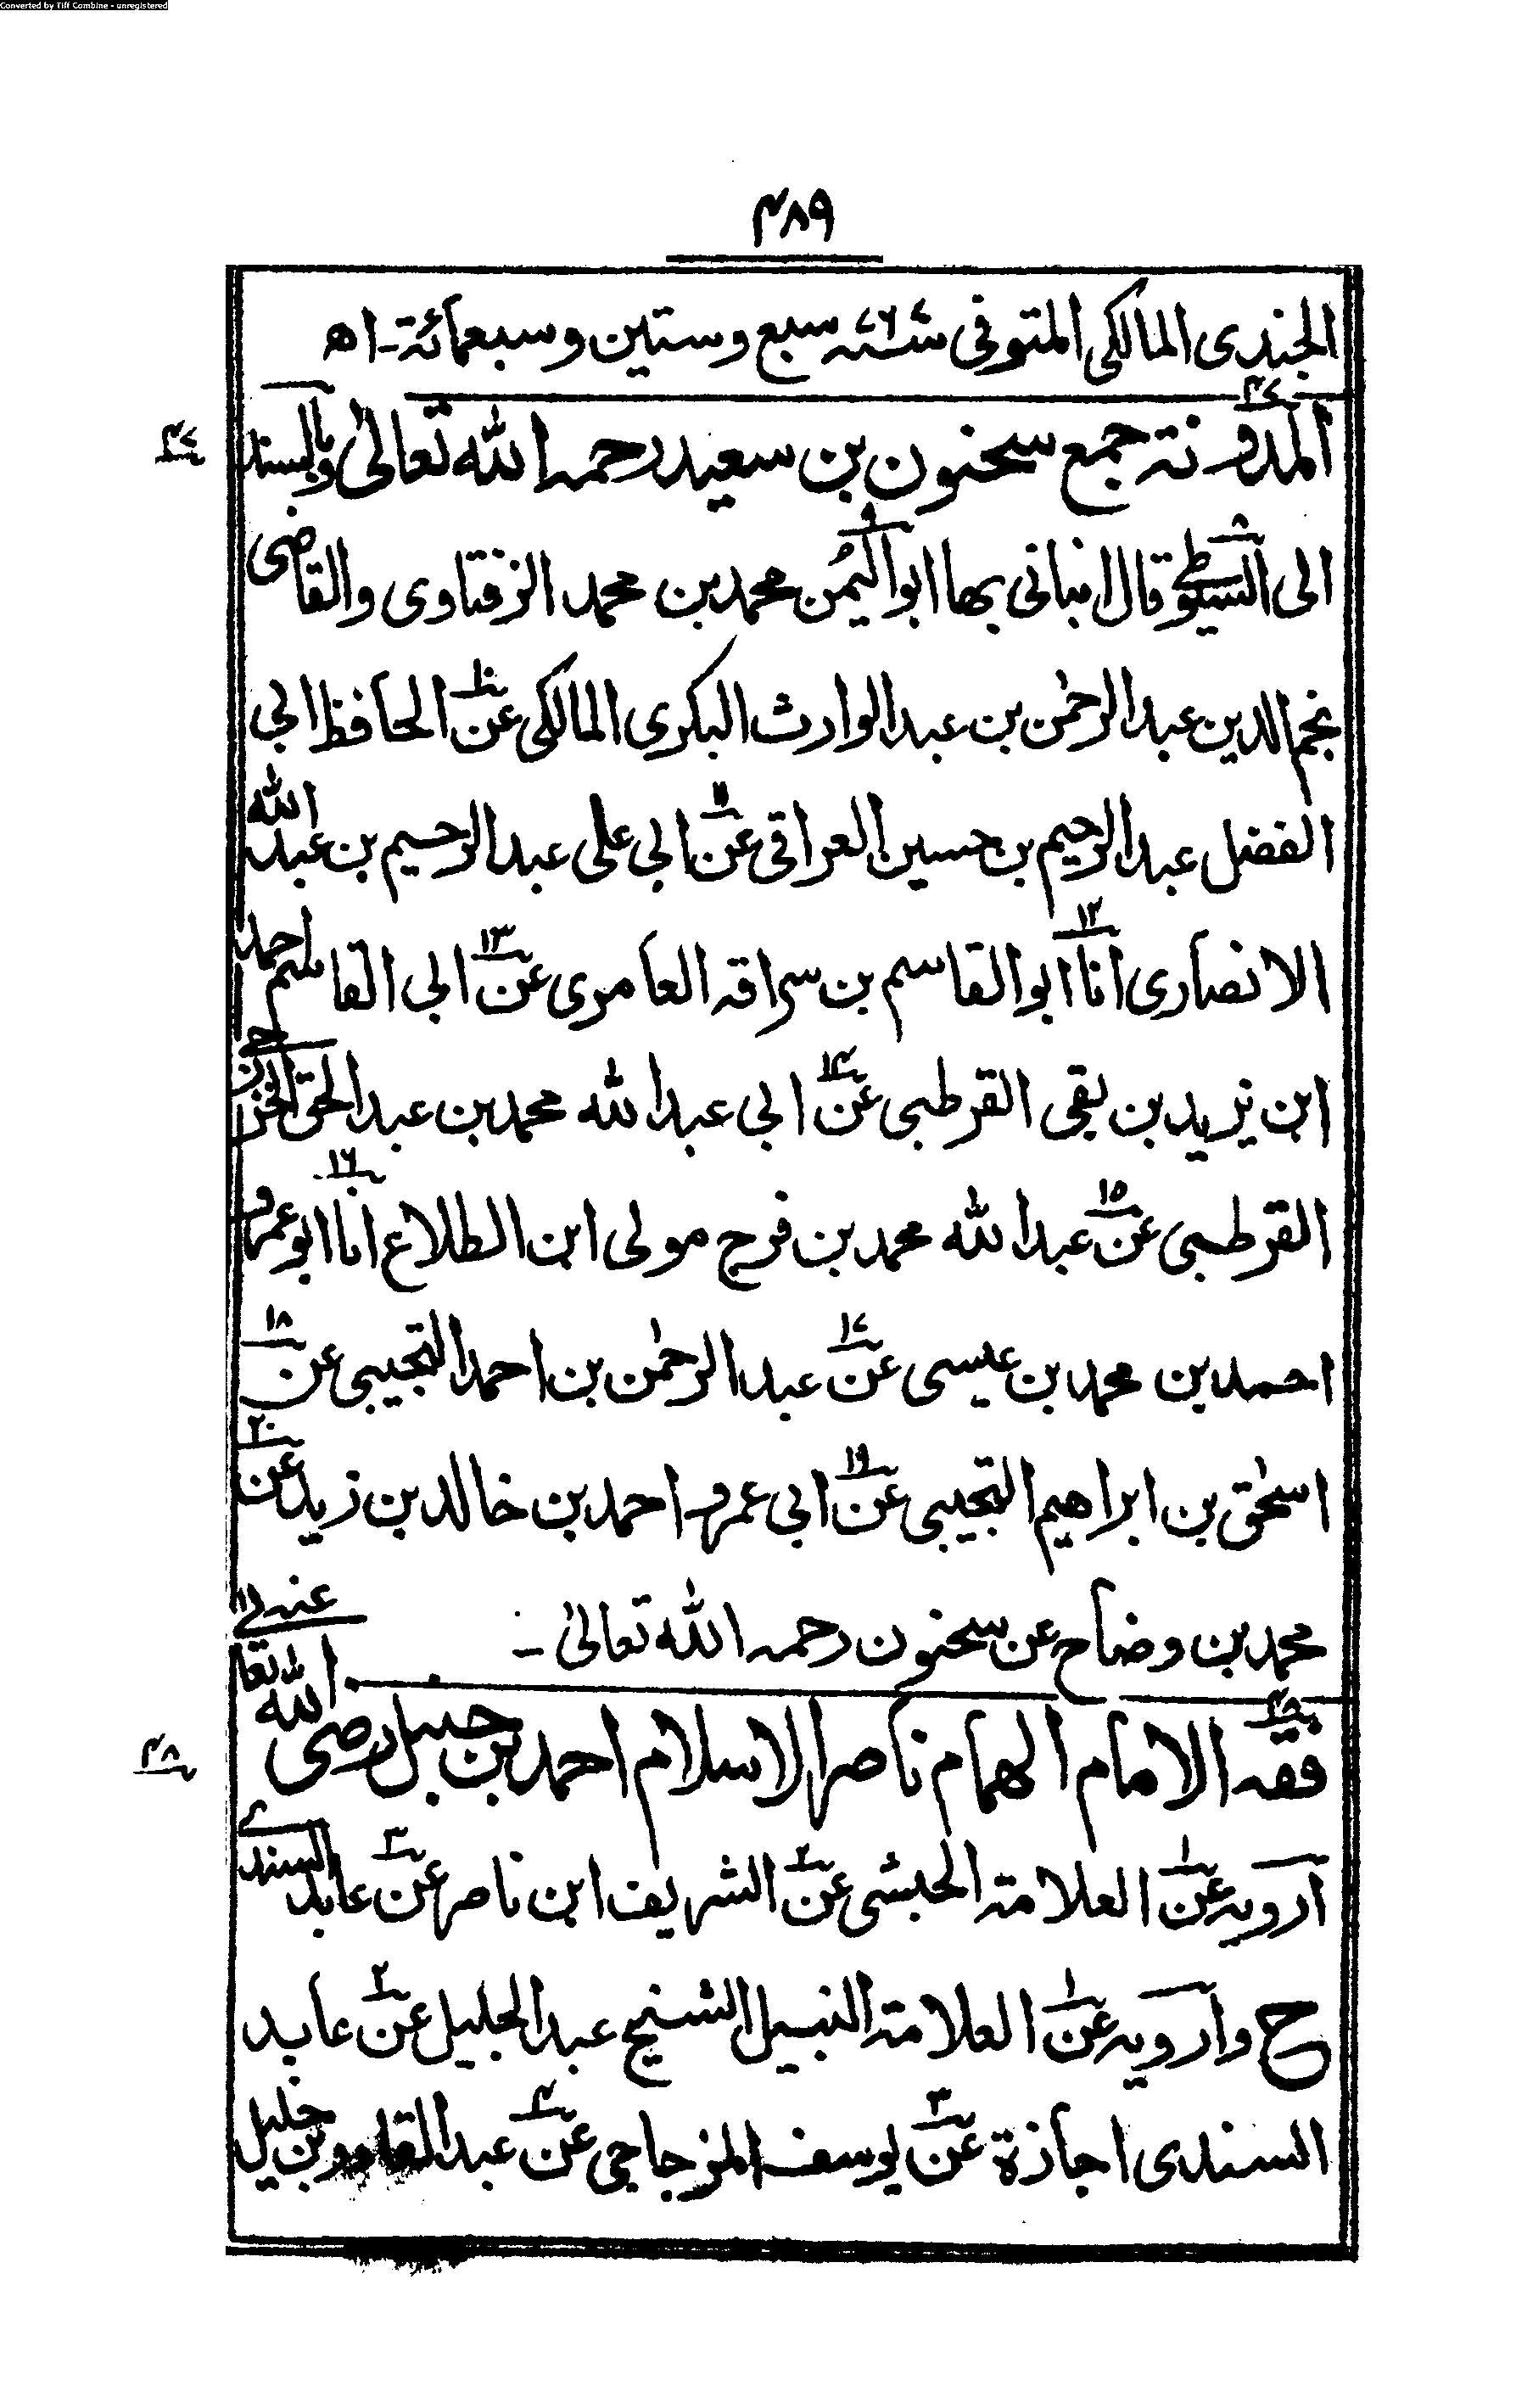 Converted by Tiff Combine - unregistered
۴۸۹
الجندی المالکی المتوفی ۷۶۷ سنہ سبع وستین وسبعمائۃ۔ اھ
۴۷
المدونۃ جمع سحنون بن سعید رحمہ اللہ تعالیٰ وبالسند
۴۷
الی السیوطی ۸ قال انبانی بھا ابو الیُمن ۹ محمد بن محمد الزفتاوی والقاضی
نجم الدین عبد الرحمٰن بن عبد الوارث البکری المالکی عن ۱۰ الحافظ ابی
الفضل عبد الرحیم بن حسین العراقی عن ۱۱ ابی علی عبد الرحیم بن عبد اللہ
الانصاری انا ۱۲ ابو القاسم بن سراقہ العامری عن ۱۳ ابی القاسم احمد
ابن یزید بن بقی القرطبی عن ۱۴ ابی عبد اللہ محمد بن عبد الحق الخزرجی
القرطبی عن ۱۵ عبد اللہ محمد بن فرج مولی ابن الطلاع انا ۱۶ ابو عمرو
احمد بن محمد بن عیسی عن ۱۷ عبد الرحمٰن بن احمد التجیبی عن ۱۸
اسحٰق بن ابراھیم التجیبی عن ۱۹ ابی عمرو احمد بن خالد بن زید عن ۲۰
محمد بن وضاح عن سحنون رحمہ اللہ تعالیٰ ۔
۴۸
فقہ الامام الھمام ناصر الاسلام احمد بن حنبل رضی اللہ تعالی عنہ
۴۸
ارویہ عن ۱ العلامۃ الحبشی عن ۲ الشریف ابن ناصر عن ۳ عابد السندی
ح وارویہ عن ۱ العلامۃ النبیل الشیخ عبد الجلیل عن ۲ عابد
السندی اجازۃ عن ۳ یوسف المزجاجی عن ۴ عبد القادر بن خلیل